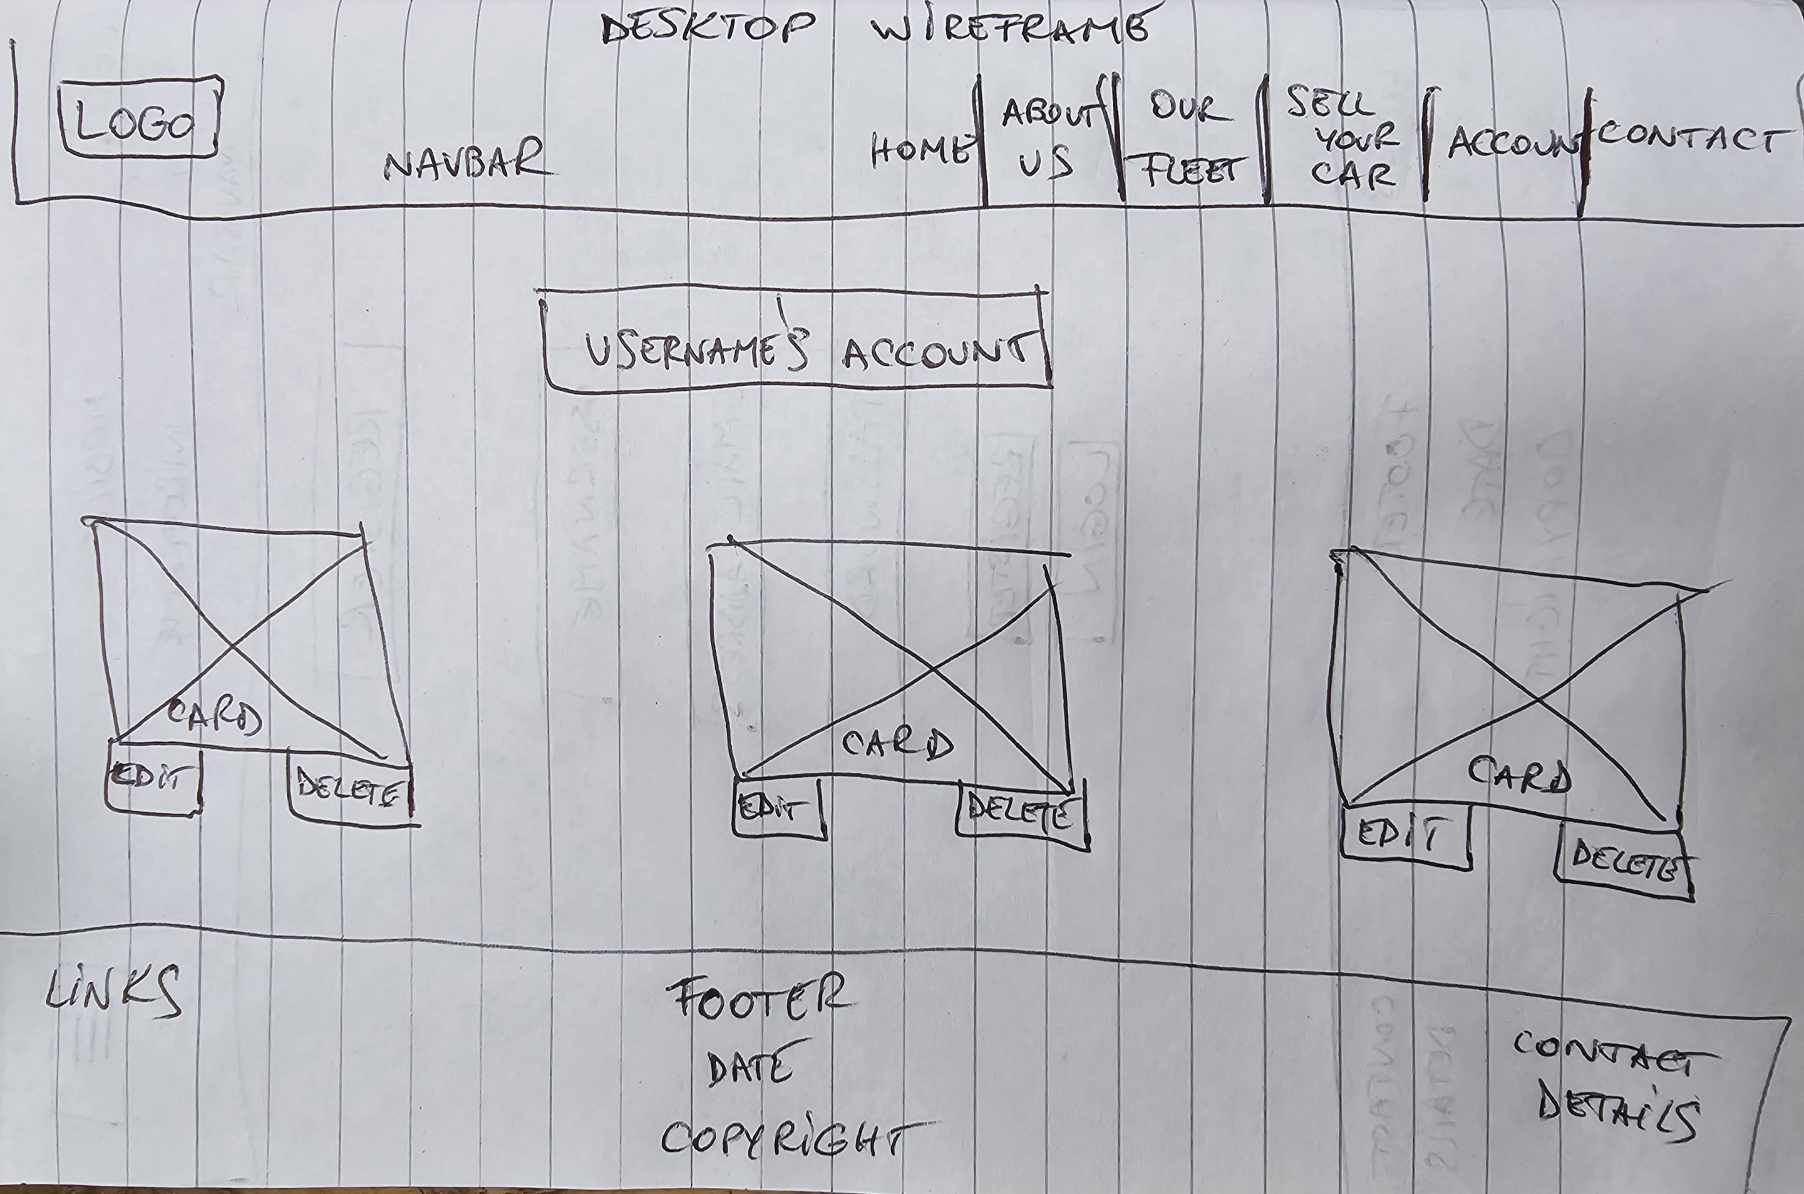 DESKTOP WIREFRAME
LOGO
NAVBAR
HOME
ABOUT
US
OUR
FLEET
SELL
YOUR
CAR
ACCOUNT
CONTACT
USERNAME'S ACCOUNT
CARD
EDIT
DELETE
CARD
EDIT
DELETE
CARD
EDIT
DELETE
LINKS
FOOTER
DATE
COPYRIGHT
CONTACT
DETAILS